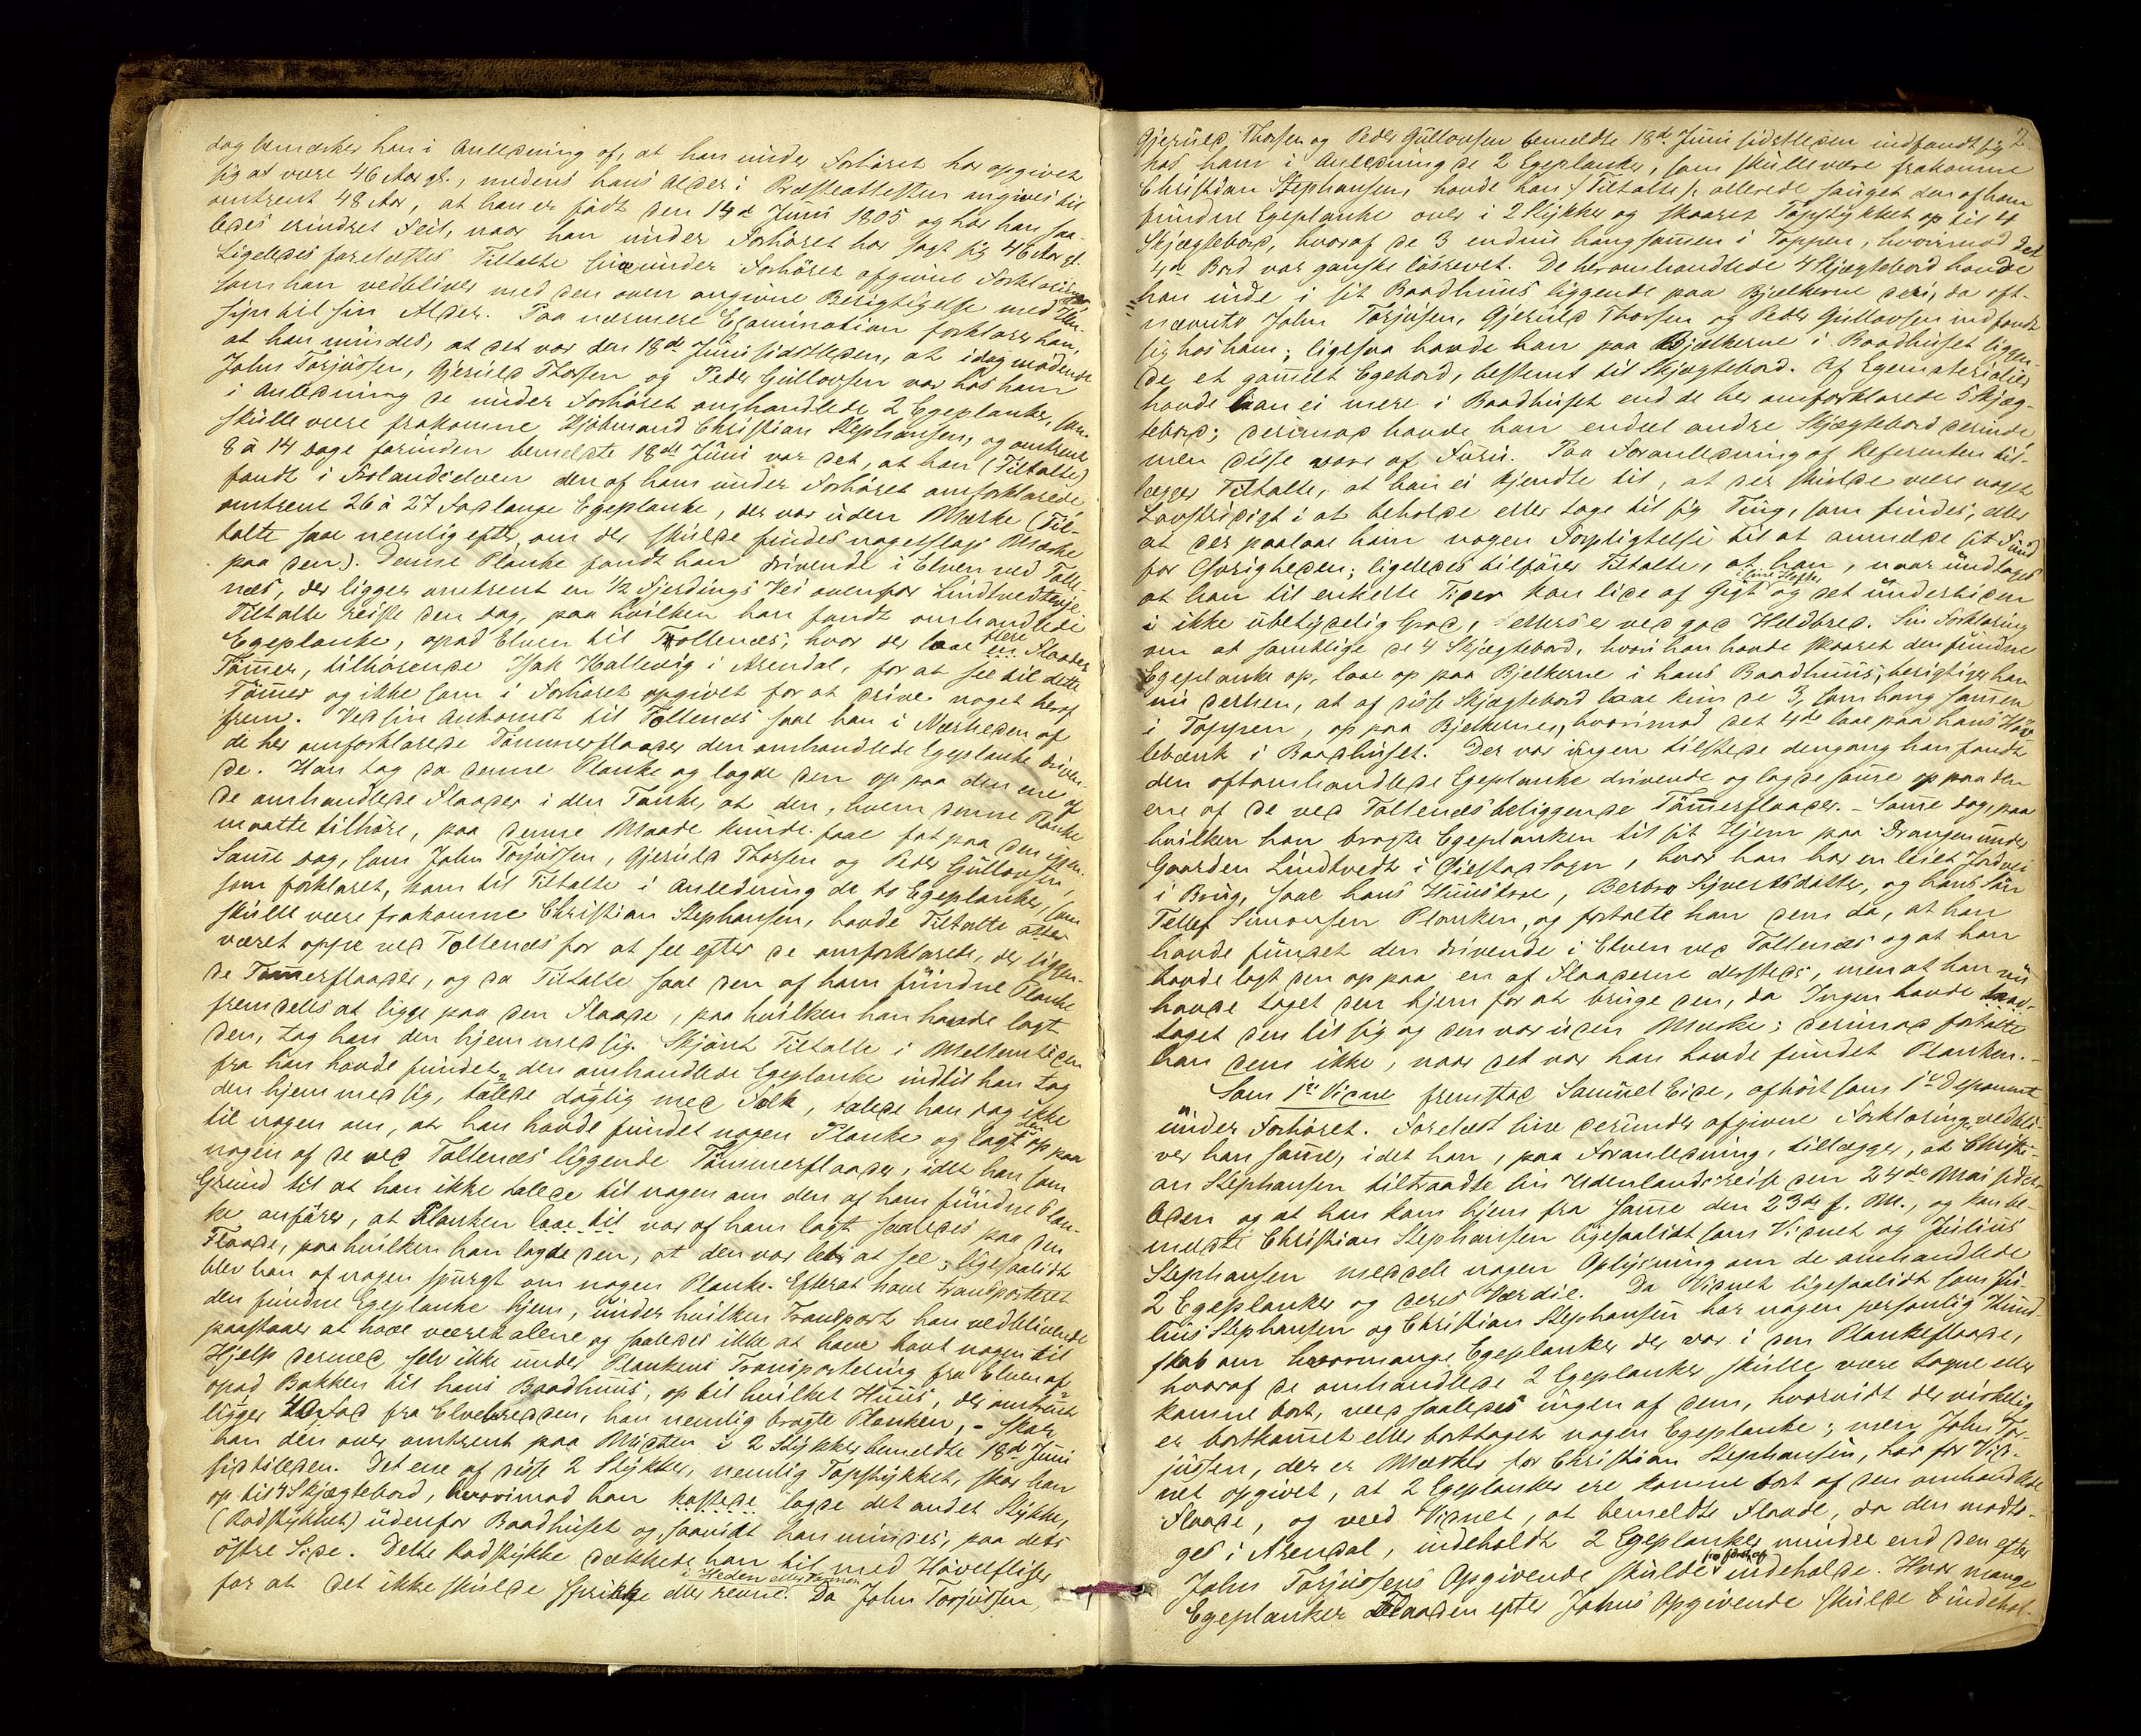 dog bemærker han i Anledning af, at han under Forhöret har opgivet
sig at være 46 Aar gl., medens hans Alder i Præsteattesten angives til
omtrent 48 Aar, at han er födt den 14d Juni 1805 og har han saa-
ledes erindret Feil, naar han under Forhöret har sagt sig 46 Aar gl.
Ligeledes forelæstes Tiltalte sin under Forhöret afgivne Forklaring
som han vedbliver med den oven angivne Berigtigelse med Hen-
syn til sin Alder. Paa nærmere Examination forklarer han,
at han mindes, at det var den 18d Juni sidstleden, at idag mödende
John Torjussen, Gjeruld Thorsen og Peder Gullovsen var hos ham
i Anledning de under Forhöret omhandlede 2 Egeplanker, som
skulle være frakomne Hjobmand Christian Stephansen, og omtrent
8 à 14 Dage forinden bemeldte 18de Juni var det, at han (Tiltalte)
fandt i Frolandselven den af ham under Forhöret omforklarede,
omtrent 26 à 27 Fod lange Egeplanke, der var uden Mærke (Til-
talte saae nemlig efter, om der skulde findes nogetslags Mærke
paa den). Denne Planke fandt han drivende i Elven ved Tolle-
næs, der ligger omtrent en 1/2 Fjerdings Vei ovenfor Lindtvedt
Tiltalte reiste den Dag, paa hvilken han fandt omhandlede
Egeplanke, opad Elven til Tollenæs, hvor der laae flere Flaader
Tömmer, tilhörende Isak Hallevig i Arendal, for at see til dette
Tömmer og ikke som i Forhöret opgivet for at drive noget heraf
frem. Ved sin Ankomst til Tollenæs saae han i Nærheden af
de her omforklarede Tömmerflaader den omhandlede Egeplanke driven-
de. Han tog da denne Planke og lagde den op paa den ene af
de omhandlede Flaader i den Tanke, at den, hvem denne Planke
maatte tilhöre, paa denne Maade kunde faae fat paa den igjen.
Samme Dag, som John Torjussen, Gjeruld Thorsen og Peder Gullovsen,
som forklaret, kom til Tiltalte i Anledning de to Egeplanker, som
skulle være frakomne Christian Stephansen, havde Tiltalte atter
været oppe ved Tollenæs for at see efter de omforklarede, der liggen-
de Tömmerflaader, og da Tiltalte saae den af ham fundne Planke
fremdeles at ligge paa den Flaade, paa hvilken han havde lagt
den, tog han den hjem med sig. Skjönt Tiltalte i Mellemtiden
fra han havde fundet den omhandlede Egeplanke indtil han tog
den hjem med sig, talede daglig med Folk, talede han dog ikke
til nogen om, at han havde fundet nogen Planke og lagt den op paa
nogen af de ved Tollenæs liggende Tömmerflaader, idet han som
Grund til at han ikke talede til nogen om den af ham fundne Plan-
ke anförer, at Planken laae til var af ham lagt saaledes paa den
Flaade, paa hvilken han lagde den, at den var let at see; ligesaalidt
blev han af nogen spurgt om nogen Planke. Efterat have transporteret
den fundne Egeplanke hjem, under hvilken Transport han vedblivende
paastaaer at have været alene og saaledes ikke at have havt nogen til
Hjelp dermed, selv ikke under Plankens Transportering fra Elven af
opad Bakken til hans Baadhuus, op til hvilket Huus, der omtrent
ligger Fod fra Elvebredden, han nemlig bragte Planken, – skar
han den over omtrent paa Midten i 2 Stykker bemeldte 18d Juni
sidstleden. Det ene af disse 2 Stykker, nemlig Topstykket, skar han
op til 4 Skjægtebord, hvorimod han kastede lagde det andet Stykke,
(Rodstykket) udenfor Baadhuset og saavidt han mindes, paa dets
östre Side. Dette Rodstykke dækkede han til med Hövelfliser
i Heden eller Varmen
for at det ikke skulde sprikke eller revne. Da John Torjussen,
2.
Gjeruld Thorsen og Peder Gullovsen bemeldte 18d Juni sidstleden indfandt sig
hos ham i Anledning de 2 Egeplanker, som skulle være frakomne
Christian Stephansen, havde han /: Tiltalte :/ allerede sauget den af ham
fundne Egeplanke over i 2 Stykker og skaaret Topstykket op til 4
Skjægtebord, hvoraf de 3 endnu hang sammen i Toppen, hvorimod det
4de Bord var ganske lösrevet. De heromhandlede 4 Skjægtebord havde
han inde i sit Baadhuus liggende paa Bjelkerne deri, da oft-
nævnte John Torjusen, Gjeruld Thorsen og Peder Gullovsen indfandt
sig hos ham; ligesaa havde han paa Bjælkerne i Baadhuset liggen-
de et gammelt Egebord, bestemt til Skjægtebord. Af Egematerialier
havde han ei mere i Baadhuset end de her omforklarede 5 Skjæg-
tebord; derimod havde han endeel andre Skjægtebord derinde,
men disse vare af Furu. Paa Foranledning af Referenten til-
lægger Tiltalte, at han ei kjendte til, at der skulde være noget
Lovstridigt i at beholde eller tage til sig Ting, som findes, eller
at der paalaae ham nogen Forpligtelse til at anmelde sit Fund
for Øvrigheden; ligeledes tilförer Tiltalte, at han, naar undtages
at han til enkelte Tider kan lide af Gigt i sine Hofter og det undertiden
i ikke ubetydelig Grad, ellers er ved god Helbred. Sin Forklaring
om at samtlige de 4 Skjægtebord, hvori han havde skaaret den fundne
Egeplanke op, laae op paa Bjelkerne i hans Baadhuus, berigtiger han
nu derhen, at af disse Skjægtebord laae kun de 3, som hang sammen
i Toppen, op paa Bjelkerne, hvorimod det 4de laae paa hans Höv-
lebænk i Baadhuset. Der var ingen tilstede dengang han fandt
den oftomhandlede Egeplanke drivende og lagde samme op paa den
ene af de ved Tollenæs beliggende Tömmerflaader. – Samme Dag, paa
hvilken han bragte Egeplanken til sit Hjem paa Drangen under
Gaarden Lindtvedt i Øiestad Sogn, hvor han har en leiet Jordvei
i Brug, saae hans Huustroe, Berbro Syvertsdatter, og hans Sön
Tellef Simonsen Planken, og fortalte han dem da, at han
havde fundet den drivende i Elven ved Tollenæs og at han
havde lagt den op paa en af Flaaderne dersteds, men at han nu
havde taget den hjem for at bruge den, da Ingen havde
taget den til sig og den var uden Mærke; derimod fortalte
han dem ikke, naar det var han havde fundet Planken. –
Som 1ste Vidne fremstod Samuel Eide, afhört som 1ste Deponent
under Forhöret. Forelæst sin derunder afgivne Forklaring, vedbli-
ver han samme, idet han, paa Foranledning, tillægger, at Christi-
an Stephansen tiltraadte sin Udenlandsreise den 24de Mai sidst-
leden og at han kom hjem fra samme den 23de f. M., og kan be-
meldte Christian Stephansen ligesaalidt som Vidnet og Julius
Stephansen meddele nogen Oplysning om de omhandlede
2 Egeplanker og deres Værdie. Da Vidnet ligesaalidt som Ju-
lius Stephansen og Christian Stephansen har nogen personlig Kund-
skab om hvormange Egeplanker der var i den Plankeflaade,
hvoraf de omhandlede 2 Egeplanker skulle være tagne eller
komne bort, veed saaledes ingen af dem, hvorvidt der virkelig
er bortkommet eller borttaget nogen Egeplanke; men John Tor-
jussen, der er Mærker for Christian Stephansen, har for Vid-
net opgivet, at 2 Egeplanker ere komne bort af den omhandlede
Flaade, og veed Vidnet, at bemeldte Flaade, da den modto-
ges i Arendal, indeholdt 2 Egeplanker mindre end den efter
John Torjussens Opgivende skulde fra först af indeholde. Hvor mange
Egeplanker Flaaden efter Johns Opgivende skulde indehol-